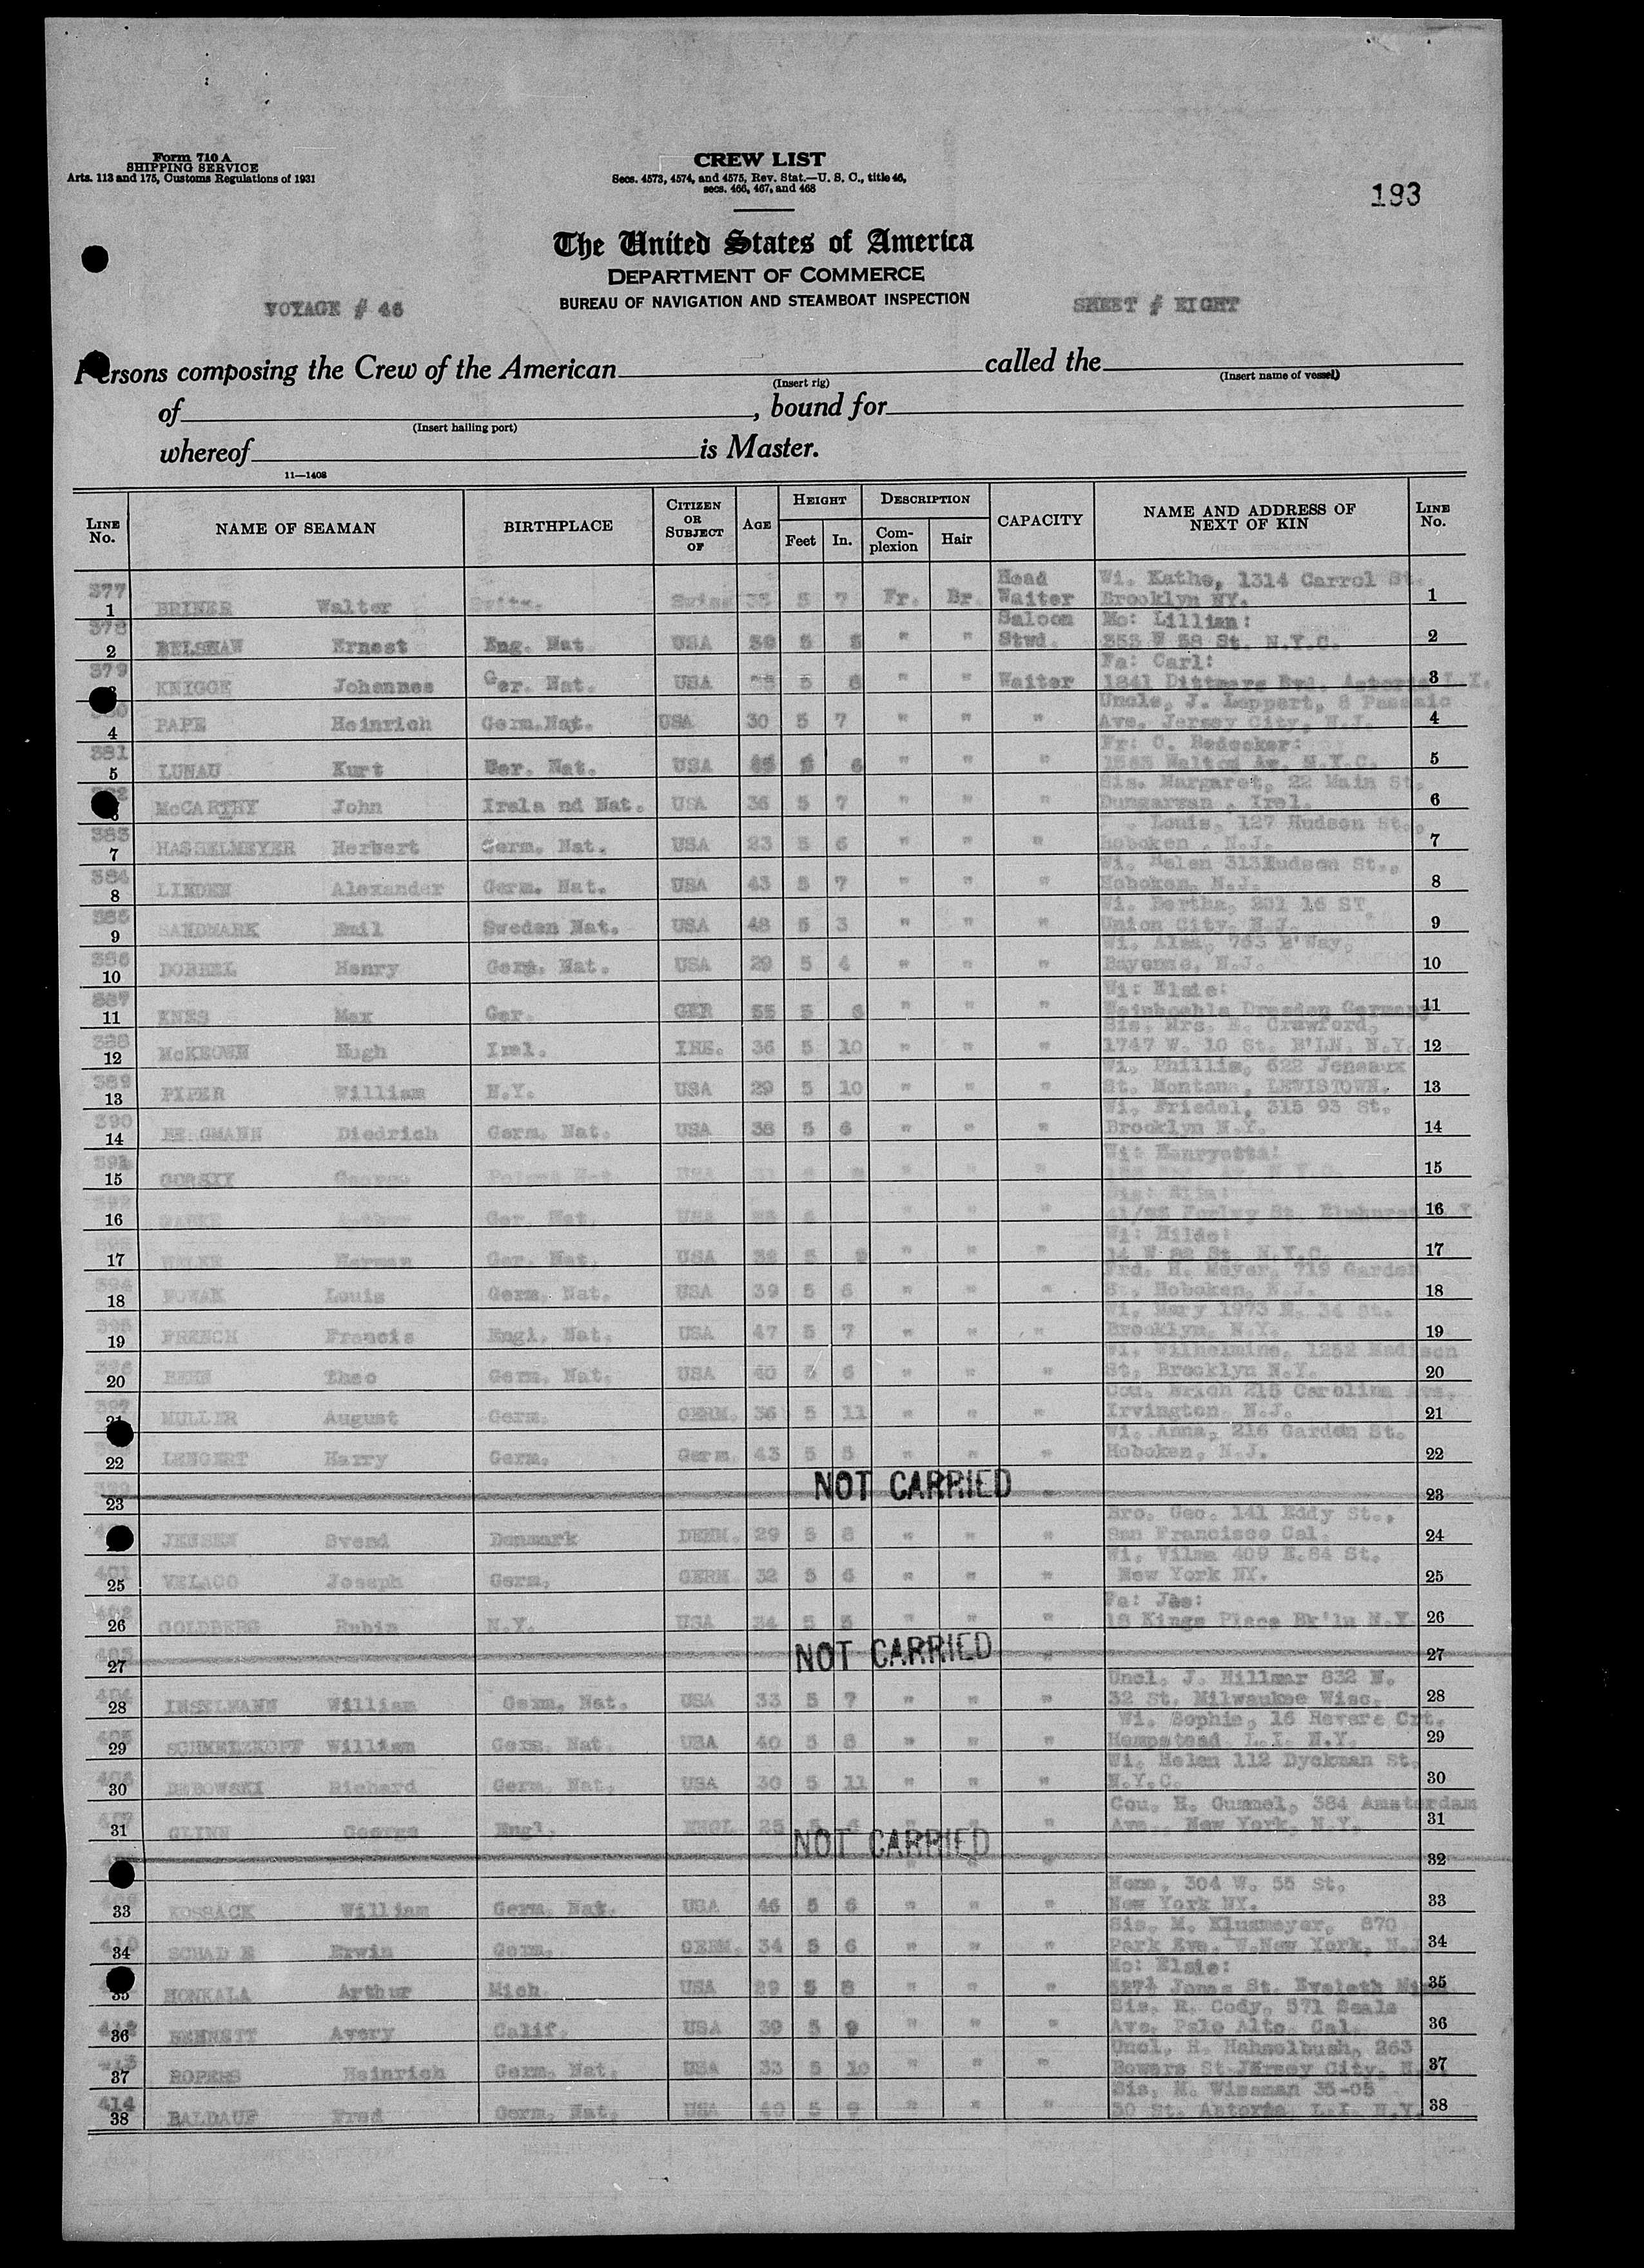 Form 710 A
SHIPPING SERVICE
Arts. 113 and 175, Customs Regulations of 1931
CREW LIST
Secs. 4573, 4574, and 4575, Rev. Stat.—U. S. C., title 46,
secs. 466, 467, and 468
193
The United States of America
DEPARTMENT OF COMMERCE
BUREAU OF NAVIGATION AND STEAMBOAT INSPECTION
VOYAGE # 46
SHEET # EIGHT
Persons composing the Crew of the American called the
(Insert rig) (Insert name of vessel)
of , bound for
(Insert hailing port)
whereof is Master.
11—1408
LINE No. NAME OF SEAMAN BIRTHPLACE CITIZEN OR SUBJECT OF AGE HEIGHT Feet In. DESCRIPTION Complexion Hair CAPACITY NAME AND ADDRESS OF NEXT OF KIN LINE No.
377 Head Wi. Kathe, 1314 Carrol St.
1 BRINER Walter Switz. Swiss 5 7 Fr. Br. Waiter Brooklyn NY. 1
378 Saloon Mo: Lillian:
2 BELSHAW Ernest Eng. Nat USA 39 5 " " Stwd. 353 W 58 St. N.Y.C. 2
379 Fa: Carl:
KNIGGE Johannes Ger. Nat. USA 5 " " Waiter 1841 Dittmars Bvd. Astoria L.I. 3
Uncle, J. Leppert, 8 Passaic
4 PAPE Heinrich Germ.Nat. USA 30 5 7 " " " Ave. Jersey City, N.J. 4
381 Fr: C. Bedecker:
5 LUNAU Kurt Ger. Nat. USA 5 6 " " " Walton Av. N.Y.C. 5
Sis. Margaret, 22 Main St.
McCARTHY John Irela nd Nat. USA 36 5 7 " " " Dungarvan , Irel. 6
383 Louis, 127 Hudson St.,
7 HASSELMEYER Herbert Germ. Nat. USA 23 5 6 " " " Hoboken , N.J. 7
384 Wi. Helen 313Hudson St.,
8 LINDEN Alexander Germ. Nat. USA 43 5 7 " " " Hoboken, N.J. 8
385 Wi. Bertha, 201 16 ST
9 SANDMARK Emil Sweden Nat. USA 48 5 3 " " " Union City, N.J. 9
386 Wi. Alma, 763 B'Way,
10 DOBBEL Henry Germ. Nat. USA 29 5 4 " " " Bayonne, N.J. 10
387 Wi: Elsie:
11 KNES Max Ger. GER 55 5 6 " " " Weinboehla Dresden Germany 11
388 Sis. Mrs. E. Crawford,
12 McKEOWN Hugh Irel. IRE. 36 5 10 " " " 1747 W. 10 St. B'LN. N.Y. 12
389 Wi. Phillis, 622 Jeneaux
13 PIPER William N.Y. USA 29 5 10 " " " St. Montana, LEWISTOWN. 13
390 Wi. Friedel, 315 93 St.
14 BERGMANN Diedrich Germ. Nat. USA 38 5 6 " " " Brooklyn N.Y. 14
391 Wi: Henryetta:
15 GORSKY George Poland Nat USA " " " Av. N.Y.C. 15
16 Ger. Nat. USA " " " Forley St. Elmhurst 16
Wi: Hilde:
17 Herman Ger. Nat. USA 32 5 " " " 14 W 82 St. N.Y.C. 17
394 Frd. H. Meyer, 719 Garden
18 NOWAK Louis Germ. Nat. USA 39 5 6 " " " St. Hoboken, N.J. 18
395 Wi. Mary 1973 E. 34 St.
19 FRENCH Francis Engl. Nat. USA 47 5 7 " " " Brooklyn, N.Y. 19
396 Wi. Wilhelmine, 1252 Madison
20 Theo Germ. Nat. USA 40 5 6 " " " St, Brooklyn N.Y. 20
397 Cou. Erich 215 Carolina Ave.
21 MULLER August Germ. GERM. 36 5 11 " " " Irvington, N.J. 21
Wi. Anna, 216 Garden St.
22 LENGERT Harry Germ. Germ. 43 5 5 " " " Hoboken, N.J. 22
23 NOT CARRIED " 23
Bro. Geo. 141 Eddy St.,
JENSEN Svend Denmark DENM. 29 5 8 " " " San Francisco Cal. 24
401 Wi. Vilma 409 E.84 St.
25 VELACO Joseph Germ. GERM. 32 5 6 " " " New York NY. 25
402 Fa: Jas:
26 GOLDBERG Rubin N.Y. USA 34 5 5 " " " 18 Kings Place Bk'ln N.Y. 26
403
27 NOT CARRIED " 27
404 Uncl. J. Hillmar 832 N.
28 INSELMANN William Germ. Nat. USA 33 5 7 " " " 32 St. Milwaukee Wisc. 28
405 Wi. Sophie, 16 Revere Crt.
29 SCHMELZKOPF William Germ. Nat. USA 40 5 8 " " " Hempstead L.I. N.Y. 29
406 Wi. Helen 112 Dyckman St.
30 DEBOWSKI Richard Germ. Nat. USA 30 5 11 " " " N.Y.C. 30
407 Cou. H. Gummel, 384 Amsterdam
31 GLINN George Engl. ENGL 25 5 6 " " " Ave., New York, N.Y. 31
NOT CARRIED " " " 32
Home, 304 W. 55 St.
33 KOSSACK William Germ. Nat. USA 46 5 6 " " " New York NY. 33
410 Sis. M. Klusmeyer, 870
34 SCHAD E Erwin Germ. GERM. 34 5 6 " " " Park Eve. W.New York, N.J 34
Mo: Elsie:
35 HONKALA Arthur Mich. USA 29 5 8 " " " 527½ Jones St. Eveleth 35
412 Sis. R. Cody, 571 Seale
36 BENNETT Avery Calif. USA 39 5 9 " " " Ave. Palo Alto, Cal. 36
413 Uncl. H. Hahnelbush, 263
37 ROPERS Heinrich Germ. Nat. USA 33 5 10 " " " Bowers St Jersey City, N. 37
414 Sis. M. Wissman 35-05
38 BALDAUF Fred Germ. Nat. USA 40 5 9 " " " 30 St. Astoria, L.I. N.Y. 38